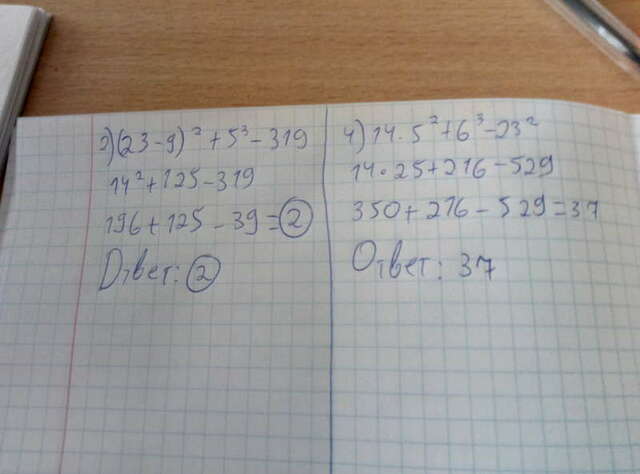 2) (23-9)² + 5³ - 319
14² + 125 - 319
196 + 125 - 39 = 2
Ответ: 2
4) 14 · 5² + 6³ - 23²
14 · 25 + 216 - 529
350 + 216 - 529 = 37
Ответ: 37